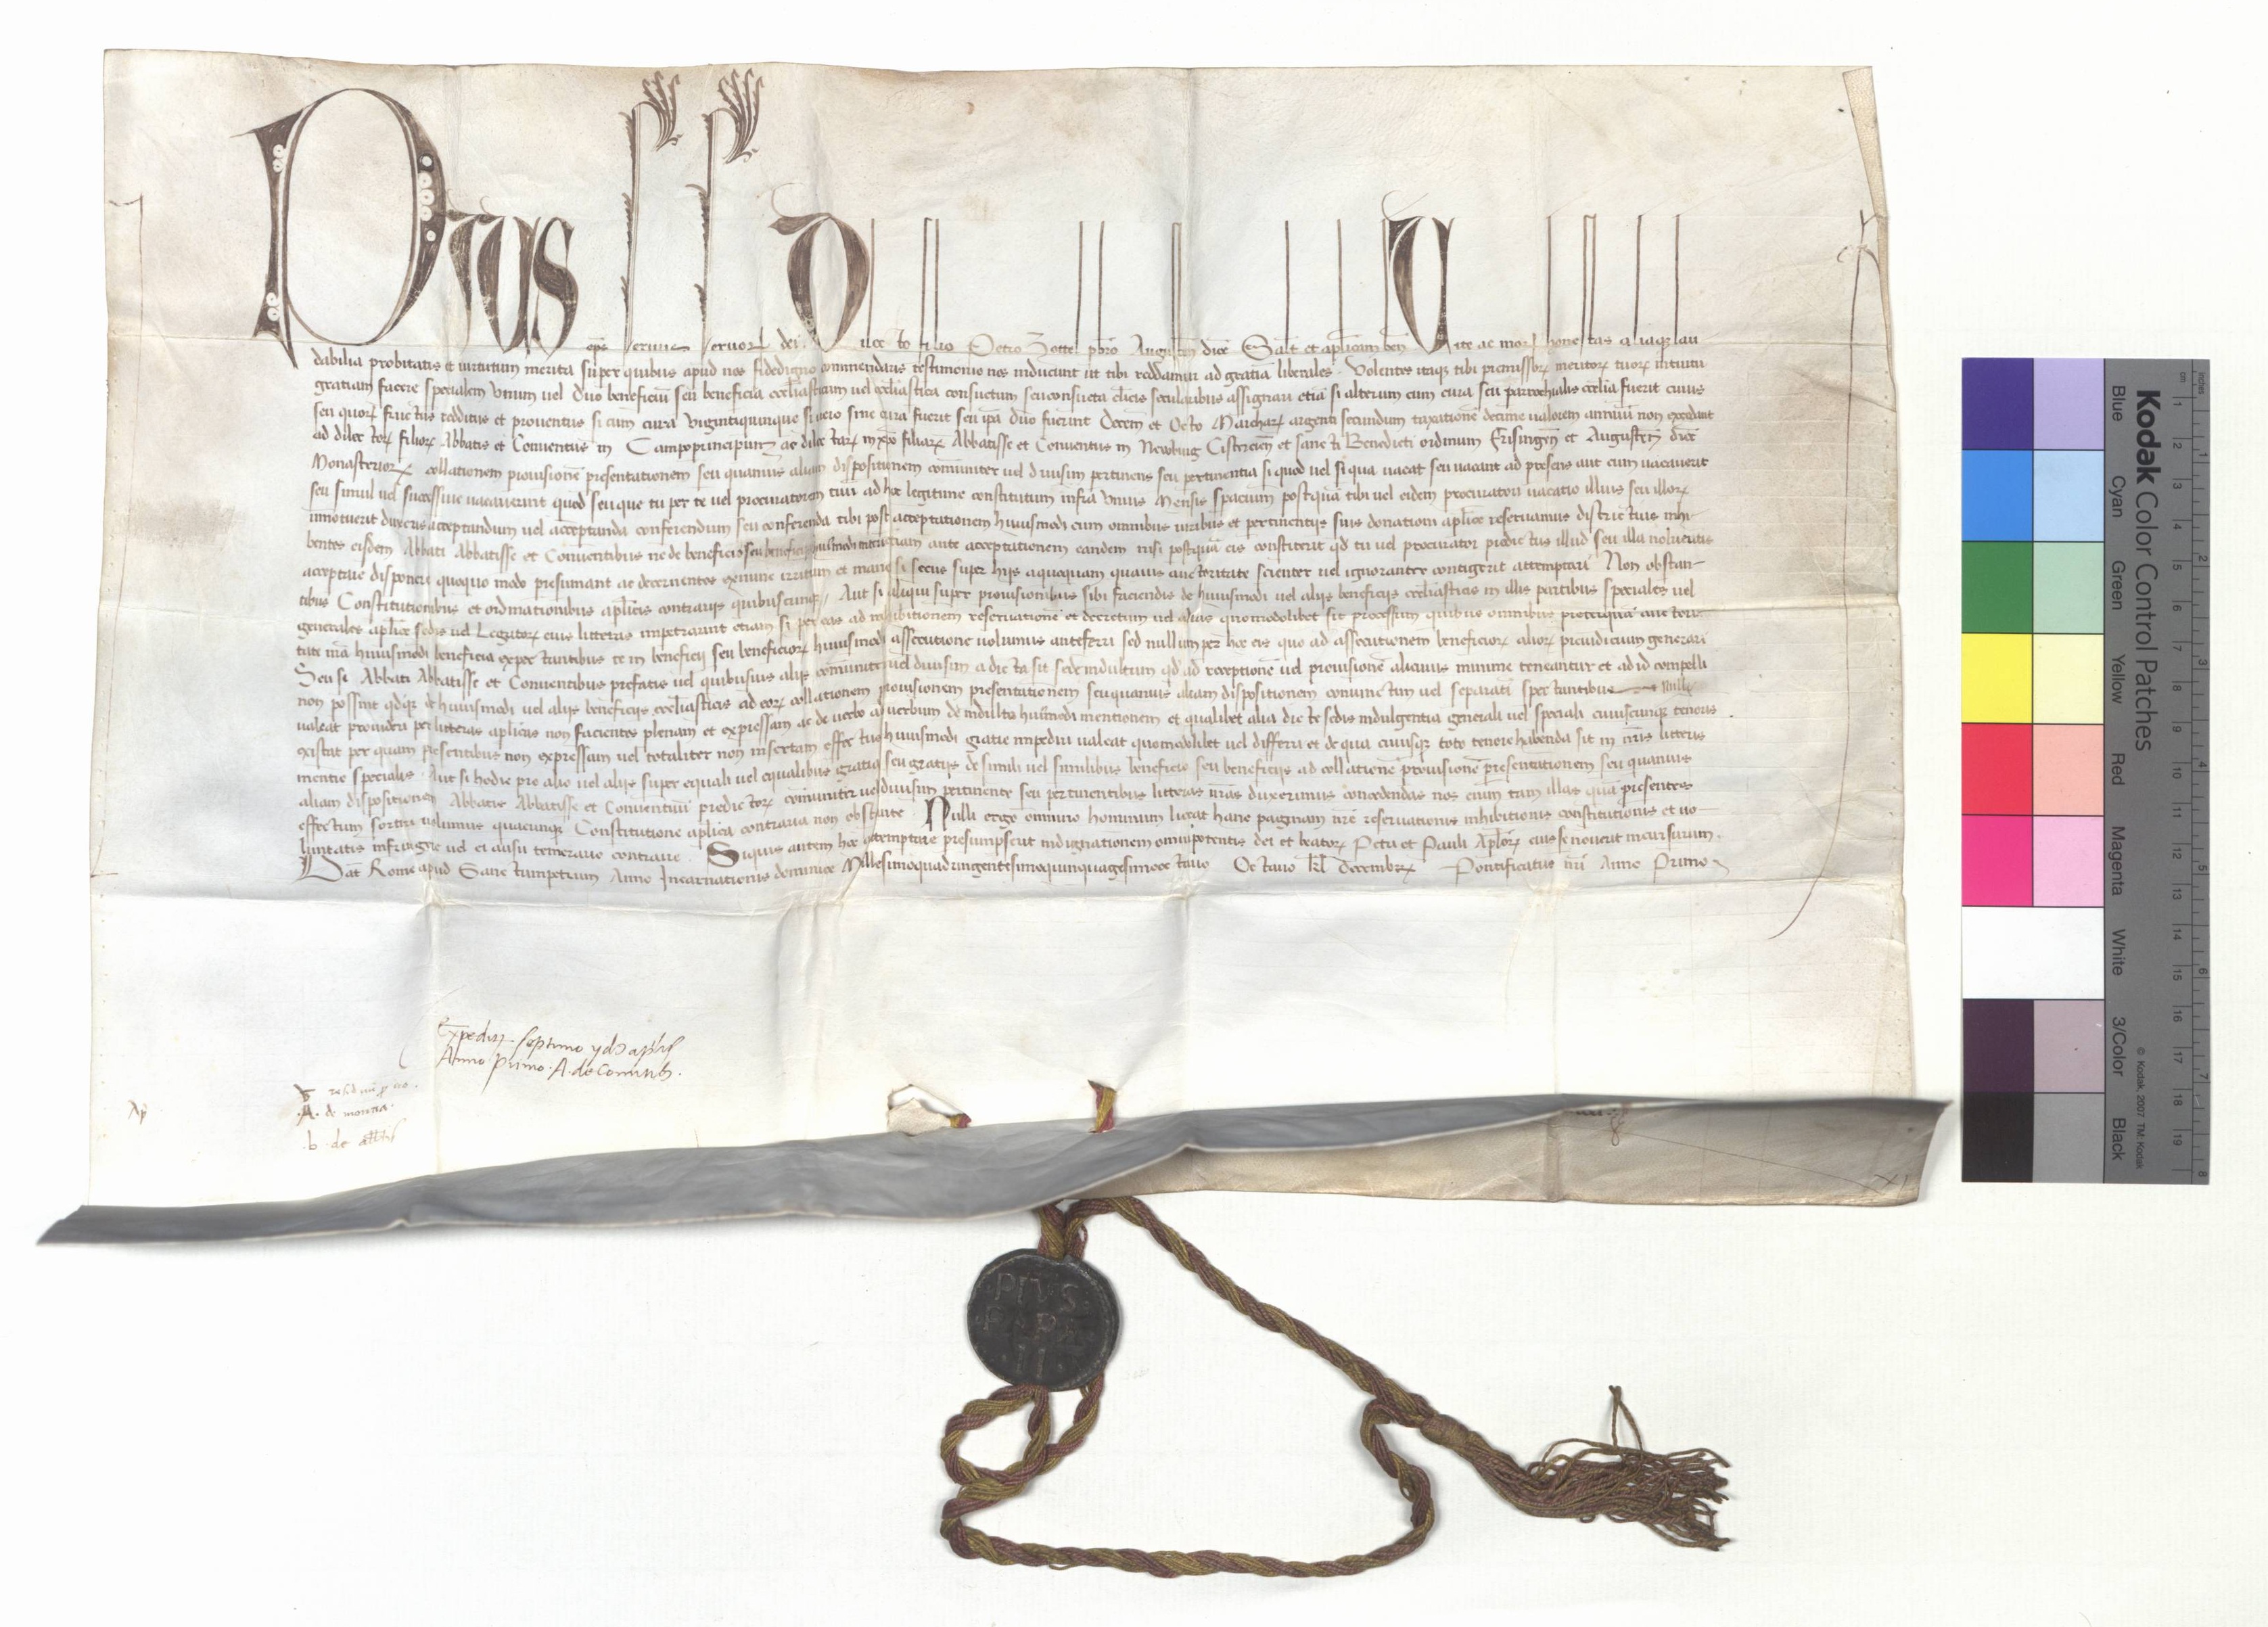 Pius eps seruus seruoru dei Dilecto filio Petro Zottel pbro Augusten dioc Salt et aplicam ben Vite ac moru honestas aliaqz lau
dabilia probitatis et uirtutum merita super quibus apud nos fidedigno commendaris testimonio nos inducunt ut tibi reddamur ad gratiam liberales. Volentes itaqz tibi premissorz meritorz tuorz intuitu
gratiam facere specialem Vnum uel Duo beneficiu seu beneficia ecclesiasticum uel ecclesiastica consuetum seu consueta clericis secularibus assignari etia si alterum cum cura seu parrochialis ecclia fuerit cuius
seu quorz fructus redditus et prouentus si cum cura Vigintiquinque si uero sine cura fuerit seu ipa duo fuerint Decem et Octo Marcharz argenti secundum taxatione decime ualorem annuu non excedant
ad dilectorz filiorz Abbatis et Conuentus in Campoprincipum ac dilectarz in xpo filiarz Abbatisse et Conuentus in Newburg Cistercien et sancti Benedicti ordinum Frisingen et Augusten dioc
Monasteriorz collationem prouisione presentationem seu quamuis aliam dispositionem comuniter uel diuisim pertinens seu pertinentia si quod uel si qua uacat seu uacant ad presens aut cum uacauerit
seu simul uel successiue uacauerint quod seu que tu per te uel procuratorem tuu ad hoc legitime constitutum infra Vnius Mensis spacium postqua tibi uel eidem procuratori uacatio illius seu illorz
innotuerit duxeris acceptandum uel acceptanda conferendum seu conferenda tibi post acceptationem huiusmodi cum omnibus iuribus et pertinentijs suis donationi aplice reseruamus districtius inhi-
bentes eisdem Abbati Abbatisse et Conuentibus ne de beneficio seu beneficijs huiusmodi interim etiam ante acceptationem eandem nisi postqua eis constiterit qd tu uel procurator predictus illud seu illa nolueritis
acceptare disponere quoquo modo presumant ac decernentes exnunc irritum et inane si secus super hijs a quoquam quauis auctoritate scienter uel ignoranter contigerit attemptari Non obstan-
tibus Constitutionibus et ordinationibus aplicis contrarijs quibuscunqz / Aut si aliqui super prouisionibus sibi faciendis de huiusmodi uel alijs beneficijs ecclesiasticis in illis partibus speciales uel
generales aplice sedis uel Legatorz eius litteras impetrarint etiam si per eas ad inhibitionem reseruatione et decretum uel alias quomodolibet sit processum quibus omnibus preterqua auctori-
tate nra huiusmodi beneficia expectantibus te in beneficij seu beneficiorz huiusmodi assecutione uolumus anteferri sed nullum per hoc eis quo ad assecutionem beneficiorz aliorz preiudicium generari
Seu si Abbati Abbatisse et Conuentibus prefatis uel quibusuis alijs comuniter uel diuisim a dicta sit sede indultum qd ad receptione uel prouisione alicuius minime teneantur et ad id compelli
non possint qdqz de huiusmodi uel alijs beneficijs ecclesiasticis ad eorz collationem prouisionem presentationem seu quamuis aliam dispositionem coniunctim uel separatim spectantibus nulli
ualeat prouideri per litteras aplicas non facientes plenam et expressam ac de uerbo ad uerbum de indulto huiusmodi mentionem et qualibet alia dicte sedis indulgentia generali uel speciali cuiuscunqz tenoris
existat per quam presentibus non expressam uel totaliter non insertam effectus huiusmodi gratie impediri ualeat quomodolibet uel differri et de qua cuiusqz toto tenore habenda sit in nris litteris
mentio specialis. Aut si hodie pro alio uel alijs super equali uel equalibus gratia seu gratijs de simili uel similibus beneficio seu beneficijs ad collatione prouisione presentationem seu quamuis
aliam dispositionem Abbatis Abbatisse et Conuentuu predictorz comuniter uel diuisim pertinente seu pertinentibus litteras nras duxerimus concedendas nos enim tam illas qua presentes
effectum sortiri uolumus quacunqz Constitutione aplica contraria non obstante. Nulli ergo omnino hominum liceat hanc paginam nre reseruationis inhibitionis constitutionis et uo-
luntatis infringere uel ei ausu temerario contraire. Siquis autem hoc attemptare presumpserit indignationem omnipotentis dei et beatorz Petri et Pauli Aplorz eius se nouerit incursurum.
Dat Rome apud Sanctumpetrum Anno Incarnationis dominice Millesimoquadringentesimoquinquagesimooctauo Octauo kl Decembrz Pontificatus nri Anno Primo
Expeditz septimo ydus aprilis
Anno Primo. A. de Comitib.
A. de montia.
b. de
PIVS
PAPA
II
Kodak Color Control Patches
Blue Cyan Green Yellow Red Magenta White 3/Color Black
© Kodak, 2007 TM: Kodak
cm 1 2 3 4 5 6 7 8 9 10 11 12 13 14 15 16 17 18 19
inches 1 2 3 4 5 6 7 8